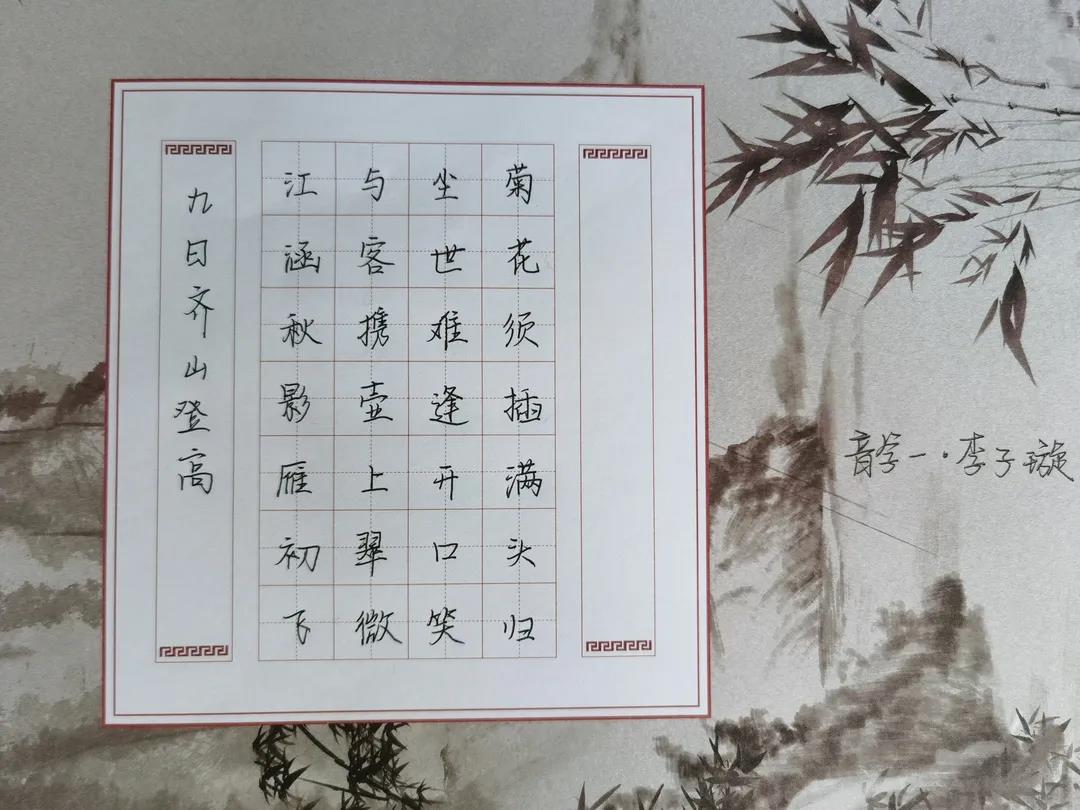 九日齐山登高
江涵秋影雁初飞
与客携壶上翠微
尘世难逢开口笑
菊花须插满头归
音学一·李子璇